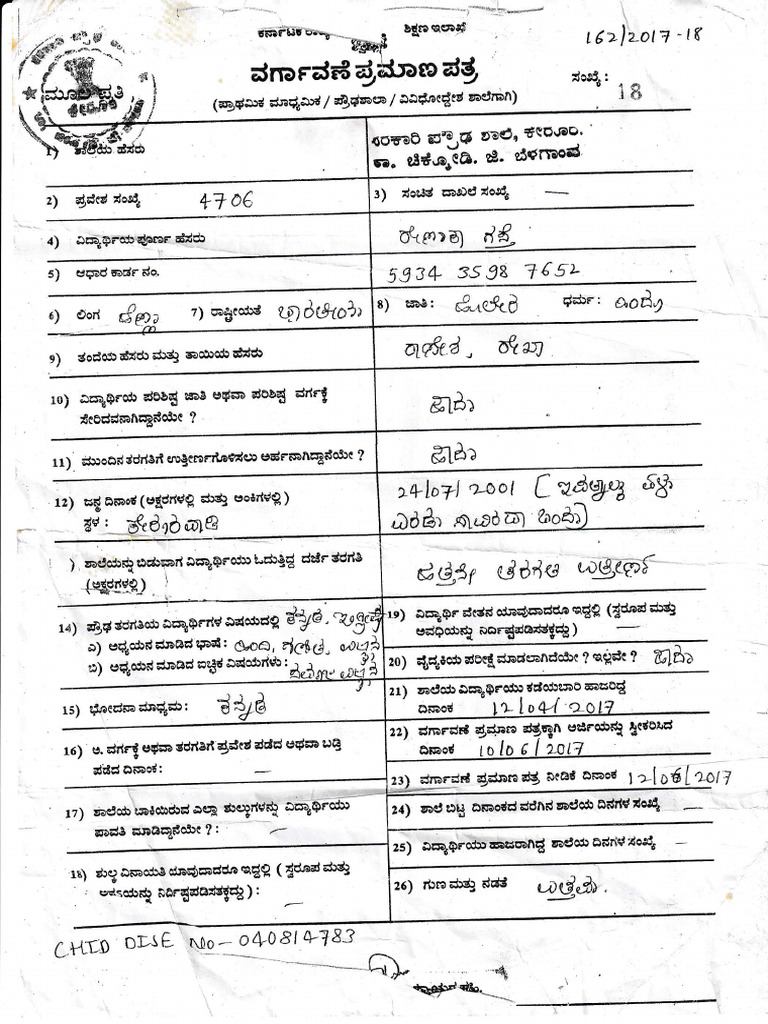 ಕರ್ನಾಟಕ ರಾಜ್ಯ ಶಿಕ್ಷಣ ಇಲಾಖೆ
162/2017-18
ವರ್ಗಾವಣೆ ಪ್ರಮಾಣ ಪತ್ರ
ಸಂಖ್ಯೆ : 18
(ಪ್ರಾಥಮಿಕ ಮಾಧ್ಯಮಿಕ / ಪ್ರೌಢಶಾಲಾ / ವಿವಿಧೋದ್ದೇಶ ಶಾಲೆಗಾಗಿ)
ಮೂಲ ಪ್ರತಿ
ಕೇರೂರ
1) ಶಾಲೆಯ ಹೆಸರು ಸರಕಾರಿ ಪ್ರೌಢ ಶಾಲೆ, ಕೇರೂರ.
ತಾ. ಚಿಕ್ಕೋಡಿ. ಜಿ. ಬೆಳಗಾಂವ
2) ಪ್ರವೇಶ ಸಂಖ್ಯೆ 4706 3) ಸಂಚಿತ ದಾಖಲೆ ಸಂಖ್ಯೆ —
4) ವಿದ್ಯಾರ್ಥಿಯ ಪೂರ್ಣ ಹೆಸರು
5) ಆಧಾರ ಕಾರ್ಡ ನಂ. 5934 3598 7652
6) ಲಿಂಗ ಹೆಣ್ಣು 7) ರಾಷ್ಟ್ರೀಯತೆ ಭಾರತೀಯ 8) ಜಾತಿ : ಹೊಲೇರ ಧರ್ಮ : ಹಿಂದೂ
9) ತಂದೆಯ ಹೆಸರು ಮತ್ತು ತಾಯಿಯ ಹೆಸರು ರಾಜೇಶ, ರೇಖಾ
10) ವಿದ್ಯಾರ್ಥಿಯ ಪರಿಶಿಷ್ಟ ಜಾತಿ ಅಥವಾ ಪರಿಶಿಷ್ಟ ವರ್ಗಕ್ಕೆ
ಸೇರಿದವನಾಗಿದ್ದಾನೆಯೇ ? ಹೌದು
11) ಮುಂದಿನ ತರಗತಿಗೆ ಉತ್ತೀರ್ಣಗೊಳಿಸಲು ಅರ್ಹನಾಗಿದ್ದಾನೆಯೇ ? ಹೌದು
12) ಜನ್ಮ ದಿನಾಂಕ (ಅಕ್ಷರಗಳಲ್ಲಿ ಮತ್ತು ಅಂಕಿಗಳಲ್ಲಿ) 24/07/2001 [ ಇಪ್ಪತ್ನಾಲ್ಕು ಏಳು
ಸ್ಥಳ : ಎರಡು ಸಾವಿರದಾ ಒಂದು]
) ಶಾಲೆಯನ್ನು ಬಿಡುವಾಗ ವಿದ್ಯಾರ್ಥಿಯು ಓದುತ್ತಿದ್ದ ದರ್ಜೆ ತರಗತಿ
(ಅಕ್ಷರಗಳಲ್ಲಿ) ಹತ್ತನೇ ತರಗತಿ ಉತ್ತೀರ್ಣ
14) ಪ್ರೌಢ ತರಗತಿಯ ವಿದ್ಯಾರ್ಥಿಗಳ ವಿಷಯದಲ್ಲಿ ಕನ್ನಡ, ಇಂಗ್ಲೀಷ
ಎ) ಅಧ್ಯಯನ ಮಾಡಿದ ಭಾಷೆ : ಹಿಂದಿ, ಗಣಿತ, ವಿಜ್ಞಾನ
ಬಿ) ಅಧ್ಯಯನ ಮಾಡಿದ ಐಚ್ಛಿಕ ವಿಷಯಗಳು : ಸಮಾಜ ವಿಜ್ಞಾನ
19) ವಿದ್ಯಾರ್ಥಿ ವೇತನ ಯಾವುದಾದರೂ ಇದ್ದಲ್ಲಿ (ಸ್ವರೂಪ ಮತ್ತು
ಅವಧಿಯನ್ನು ನಿರ್ದಿಷ್ಟಪಡಿಸತಕ್ಕದ್ದು) —
20) ವೈದ್ಯಕೀಯ ಪರೀಕ್ಷೆ ಮಾಡಲಾಗಿದೆಯೇ ? ಇಲ್ಲವೇ ? ಹೌದು
15) ಭೋದನಾ ಮಾಧ್ಯಮ : ಕನ್ನಡ
21) ಶಾಲೆಯ ವಿದ್ಯಾರ್ಥಿಯು ಕಡೆಯಬಾರಿ ಹಾಜರಿದ್ದ
ದಿನಾಂಕ 12/04/2017
16) ಅ. ವರ್ಗಕ್ಕೆ ಅಥವಾ ತರಗತಿಗೆ ಪ್ರವೇಶ ಪಡೆದ ಅಥವಾ ಬಡ್ತಿ
ಪಡೆದ ದಿನಾಂಕ: —
22) ವರ್ಗಾವಣೆ ಪ್ರಮಾಣ ಪತ್ರಕ್ಕಾಗಿ ಅರ್ಜಿಯನ್ನು ಸ್ವೀಕರಿಸಿದ
ದಿನಾಂಕ 10/06/2017
23) ವರ್ಗಾವಣೆ ಪ್ರಮಾಣ ಪತ್ರ ನೀಡಿಕೆ ದಿನಾಂಕ 12/06/2017
17) ಶಾಲೆಯ ಬಾಕಿಯಿರುವ ಎಲ್ಲಾ ಶುಲ್ಕುಗಳನ್ನು ವಿದ್ಯಾರ್ಥಿಯು
ಪಾವತಿ ಮಾಡಿದ್ದಾನೆಯೇ ? : —
24) ಶಾಲೆ ಬಿಟ್ಟ ದಿನಾಂಕದ ವರೆಗಿನ ಶಾಲೆಯ ದಿನಗಳ ಸಂಖ್ಯೆ —
25) ವಿದ್ಯಾರ್ಥಿಯು ಹಾಜರಾಗಿದ್ದ ಶಾಲೆಯ ದಿನಗಳ ಸಂಖ್ಯೆ —
18) ಶುಲ್ಕ ವಿನಾಯತಿ ಯಾವುದಾದರೂ ಇದ್ದಲ್ಲಿ ( ಸ್ವರೂಪ ಮತ್ತು
ಅವಧಿಯನ್ನು ನಿರ್ದಿಷ್ಟಪಡಿಸತಕ್ಕದ್ದು) : —
26) ಗುಣ ಮತ್ತು ನಡತೆ ಉತ್ತಮ.
CHID DISE No-040814783